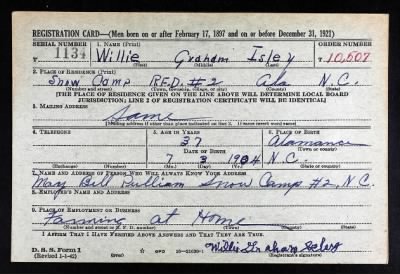 REGISTRATION CARD—(Men born on or after February 17, 1897 and on or before December 31, 1921)
SERIAL NUMBER 1. NAME (Print) ORDER NUMBER
T 1134 Willie Graham Isley T 10,507
(First) (Middle) (Last)
2. PLACE OF RESIDENCE (Print)
Snow Camp R.F.D. #2 Ala N.C.
(Number and street) (Town, township, village, or city) (County) (State)
[THE PLACE OF RESIDENCE GIVEN ON THE LINE ABOVE WILL DETERMINE LOCAL BOARD
JURISDICTION; LINE 2 OF REGISTRATION CERTIFICATE WILL BE IDENTICAL]
3. MAILING ADDRESS
Same
[Mailing address if other than place indicated on line 2. If same insert word same]
4. TELEPHONE 5. AGE IN YEARS 6. PLACE OF BIRTH
37 Alamance
DATE OF BIRTH (Town or county)
7 3 1904 N.C.
(Exchange) (Number) (Mo.) (Day) (Yr.) (State or country)
7. NAME AND ADDRESS OF PERSON WHO WILL ALWAYS KNOW YOUR ADDRESS
Snow Camp #2, N.C.
8. EMPLOYER'S NAME AND ADDRESS
9. PLACE OF EMPLOYMENT OR BUSINESS
Farming at Home
(Number and street or R. F. D. number) (Town) (County) (State)
I AFFIRM THAT I HAVE VERIFIED ABOVE ANSWERS AND THAT THEY ARE TRUE.
D. S. S. Form 1
(Revised 1-1-42) (over) 16-21630-1 Willie Graham Isley
(Registrant's signature)